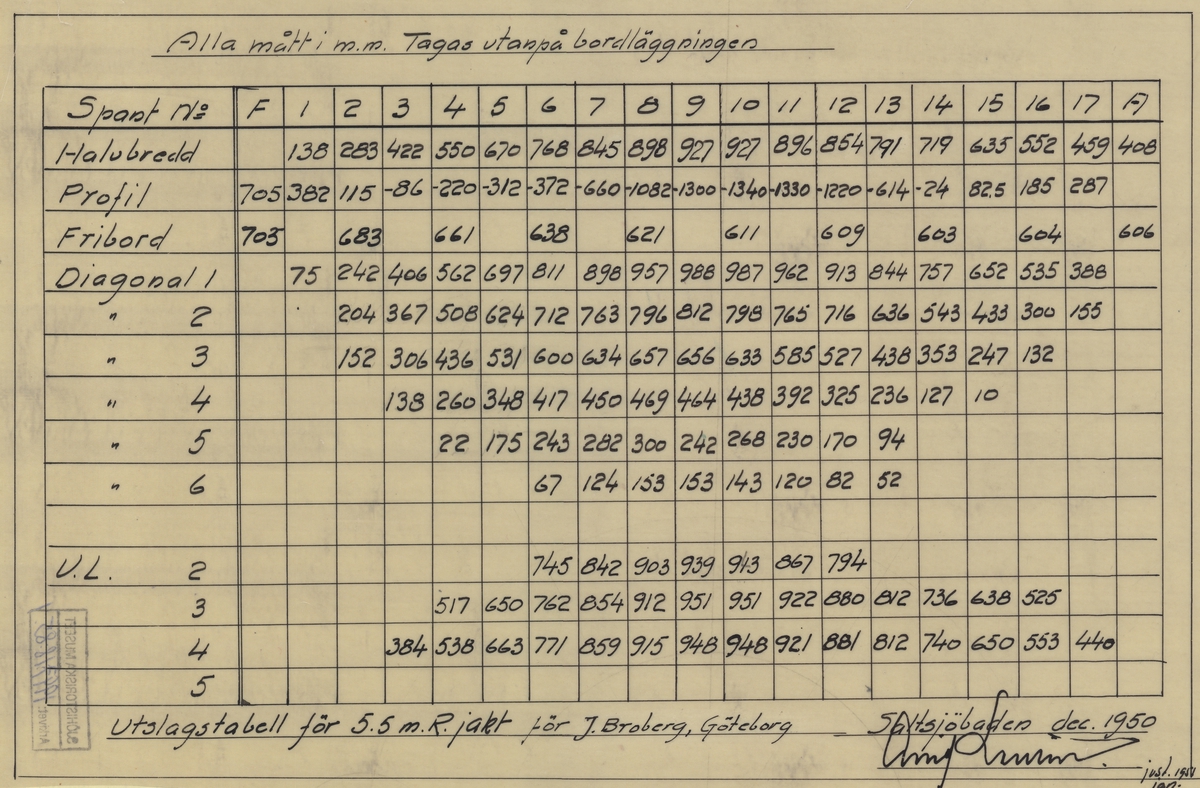 Alla mått i m.m. Tagas utanpå bordläggningen
Spant No F 1 2 3 4 5 6 7 8 9 10 11 12 13 14 15 16 17 A
Halvbredd 138 283 422 550 670 768 845 898 927 927 896 854 791 719 635 552 459 408
Profil 705 382 115 -86 -220 -312 -372 -660 -1082 -1300 -1340 -1330 -1220 -614 -24 82.5 185 287
Fribord 705 683 661 638 621 611 609 603 604 606
Diagonal 1 75 242 406 562 697 811 898 957 988 987 962 913 844 757 652 535 388
" 2 204 367 508 624 712 763 796 812 798 765 716 636 543 433 300 155
" 3 152 306 436 531 600 634 657 656 633 585 527 438 353 247 132
" 4 138 260 348 417 450 469 464 438 392 325 236 127 10
" 5 22 175 243 282 300 242 268 230 170 94
" 6 67 124 153 153 143 120 82 52
V.L. 2 745 842 903 939 913 867 794
3 517 650 762 854 912 951 951 922 880 812 736 638 525
4 384 538 663 771 859 915 948 948 921 881 812 740 650 553 440
5
Utslagstabell för 5.5 m. R. jakt för J. Broberg, Göteborg _ Saltsjöbaden dec. 1950
SJÖHISTORISKA MUSEET
Arkivet